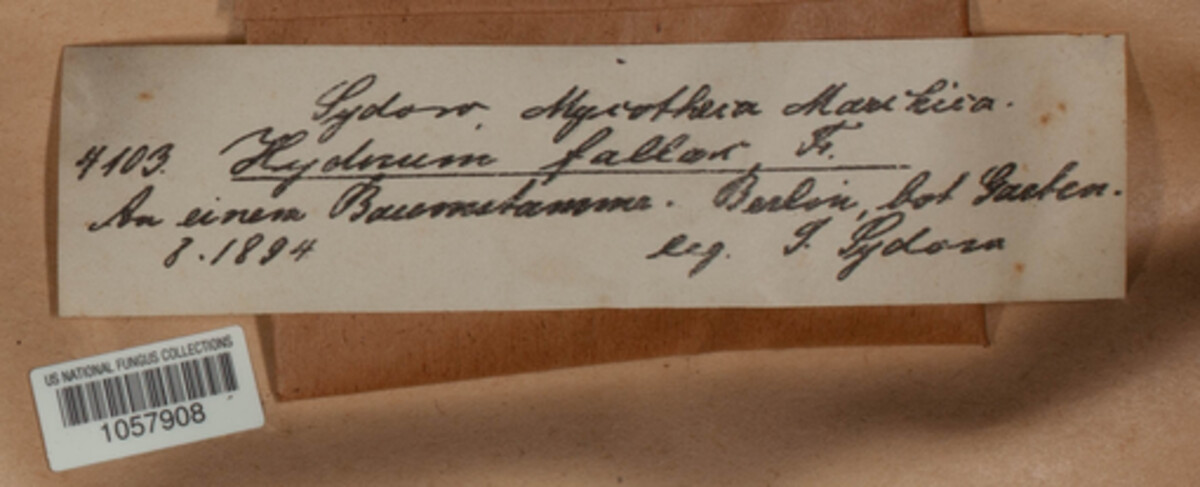 Sydow, Mycotheca Marchica.
4103. Hydnum fallax Fr.
An einem Baumstamme. Berlin, bot Garten.
8.1894 leg. P. Sydow
US NATIONAL FUNGUS COLLECTIONS
1057908